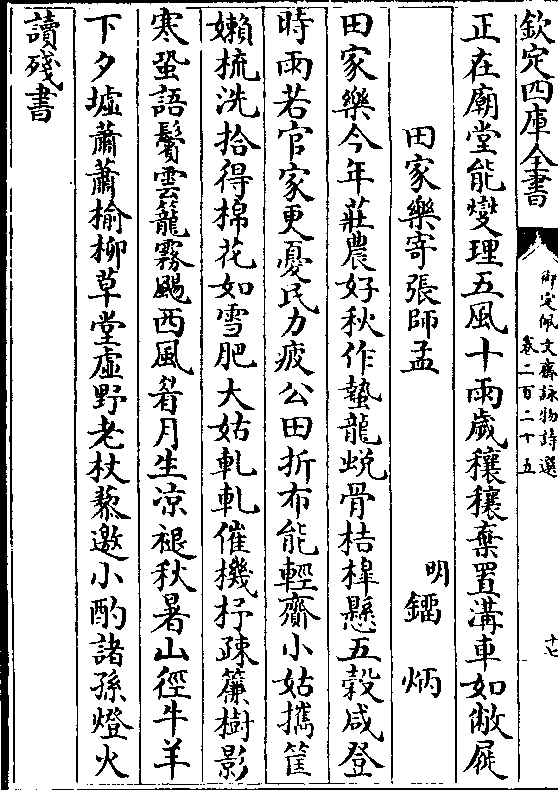 欽定四庫全書
御定佩文齋詠物詩選
卷二百二十五
十七
正在廟堂能燮理五風十雨歲穰穰棄置溝車如敝屣
田家樂寄張師孟
明鐳炳
田家樂今年莊農好秋作蟄龍蛻骨桔槹懸五穀咸登
時雨若官家更憂民力疲公田折布能輕齎小姑攜筐
嬾梳洗拾得棉花如雪肥大姑軋軋催機抒疎簾樹影
寒蛩語鬢雲籠霧颺西風眉月生凉褪秋暑山徑牛羊
下夕墟蕭蕭榆柳草堂虛野老杖藜邀小酌諸孫燈火
讀殘書